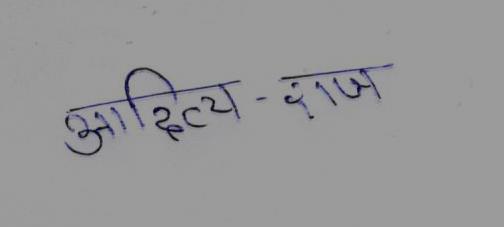 आदित्य - राज